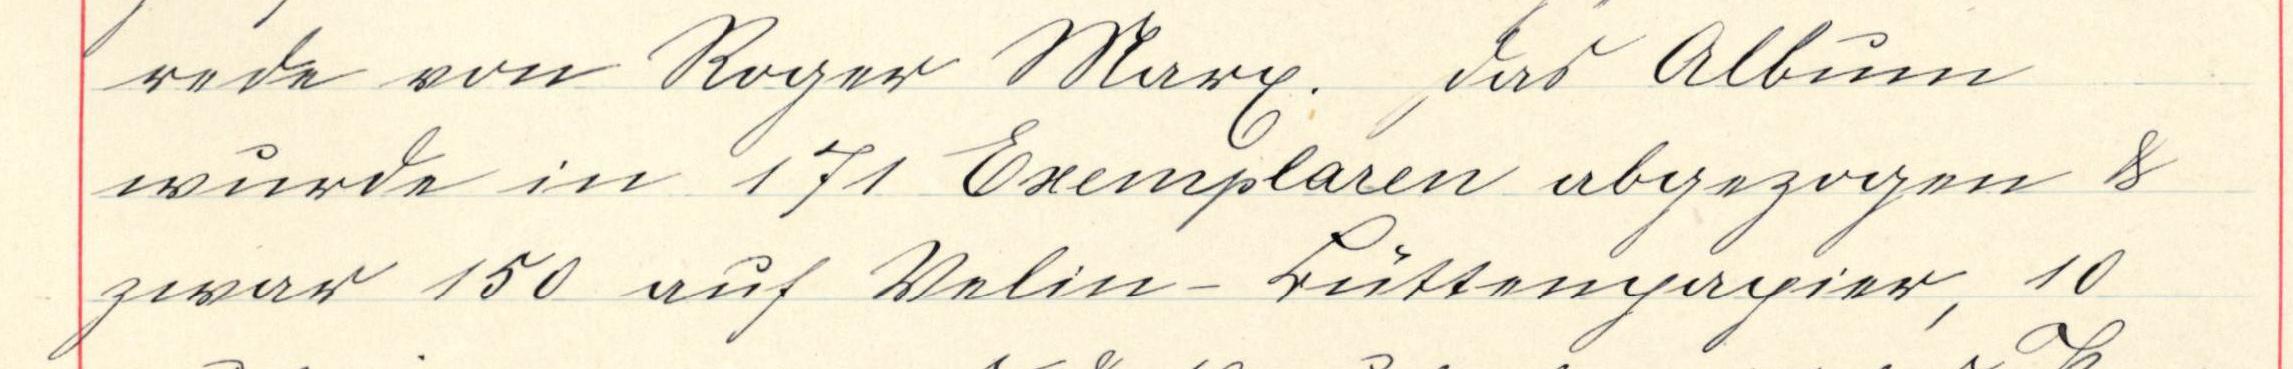 rede von Roger Marx. Das Album
wurde in 171 Exemplaren abgezogen &
zwar 150 auf Velin-Büttenpapier, 10